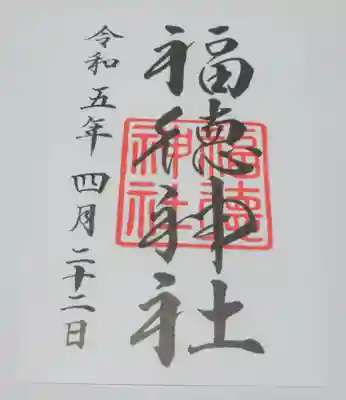 福徳神社
福徳神社
令和五年 四月二十二日